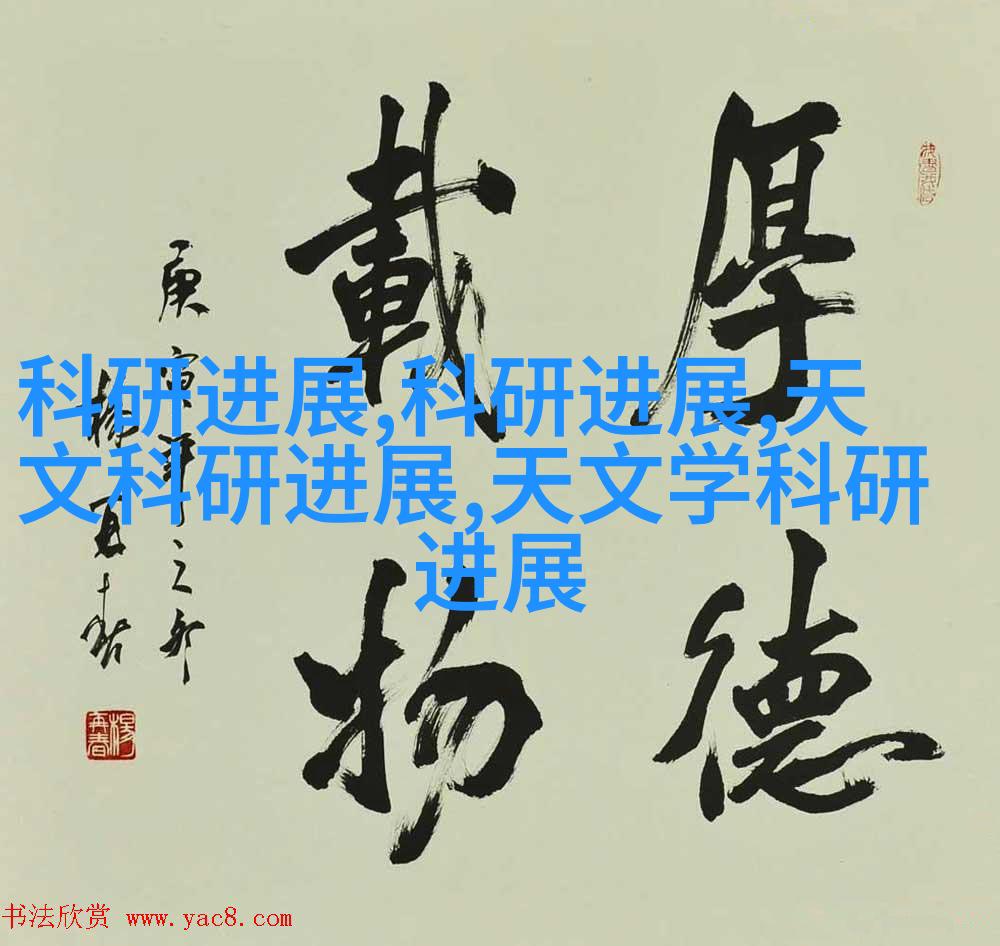 厚德
載物
庚寅年之郊
楊再春
楊再春
科研进展,科研进展,天
文科研进展,天文学科研
进展
书法欣赏 www.yac8.com